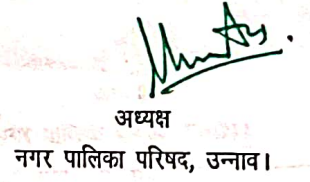 अध्यक्ष
नगर पालिका परिषद, उन्नाव।